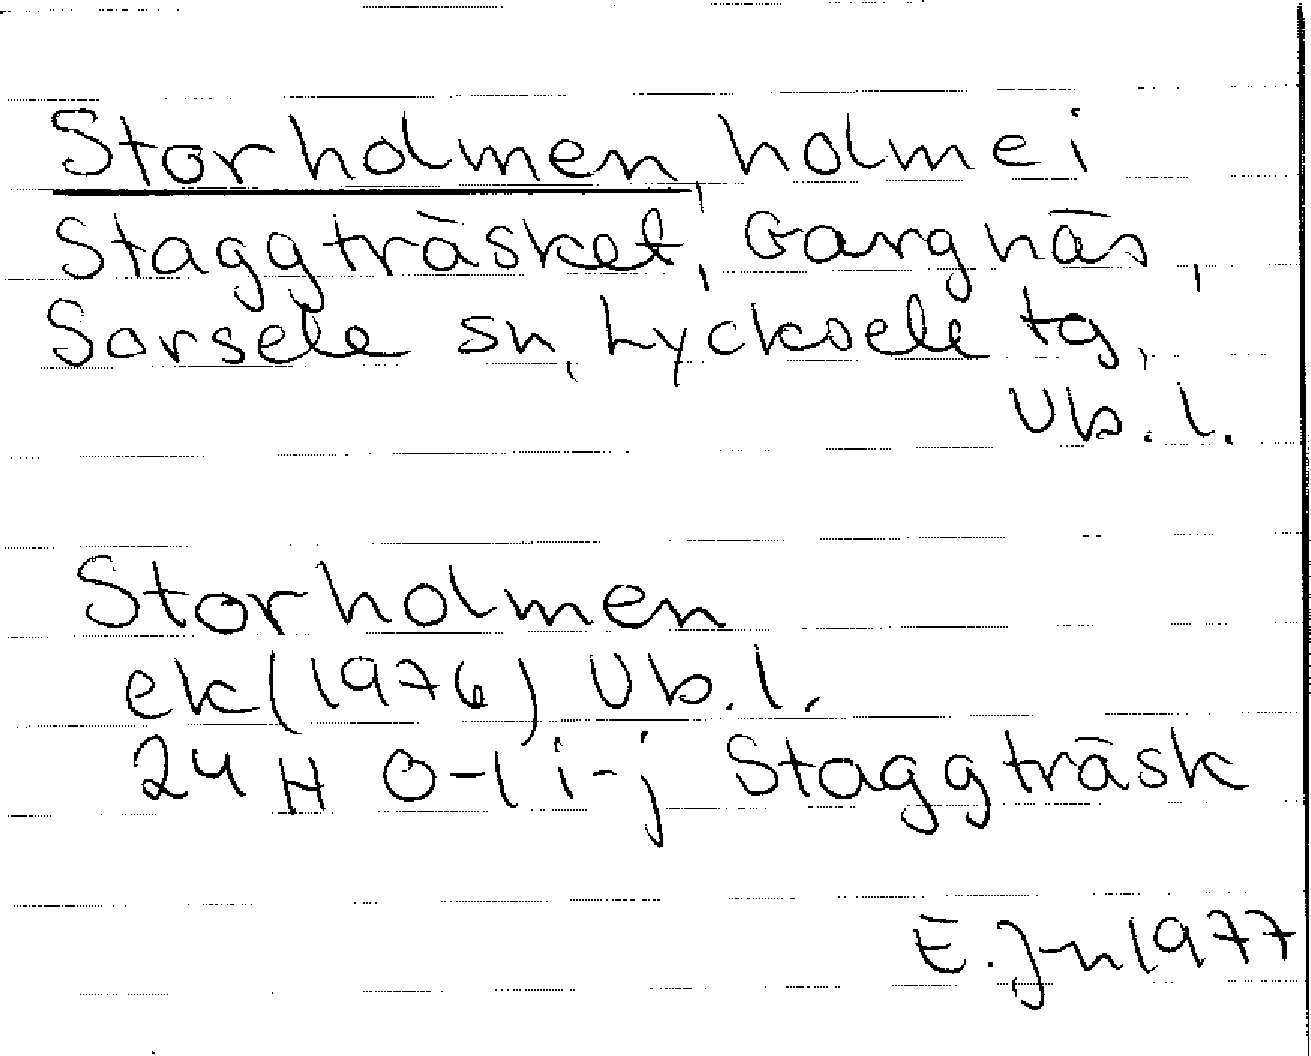 Storholmen, holme i
Staggträsket, Gargnäs,
Sorsele sn, Lycksele tg,
Vb. l.
Storholmen
ek (1976) Vb. l.
24 H 0-1 i-j Staggträsk
E. J-n 1977